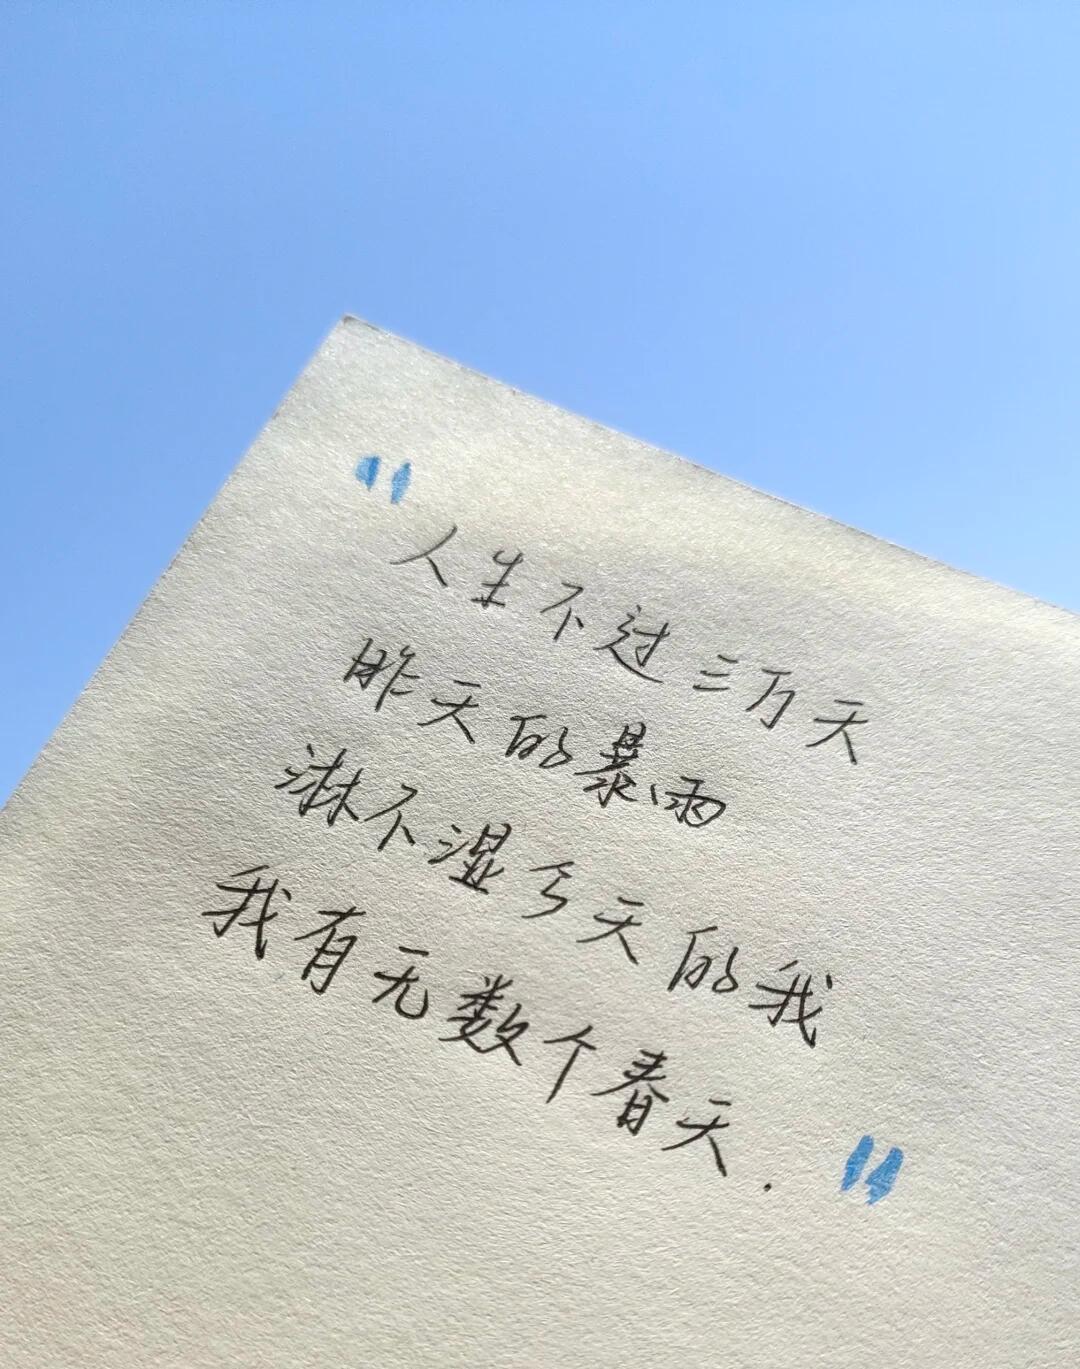 "
人生不过三万天
昨天的暴雨
淋不湿今天的我
我有无数个春天.
"